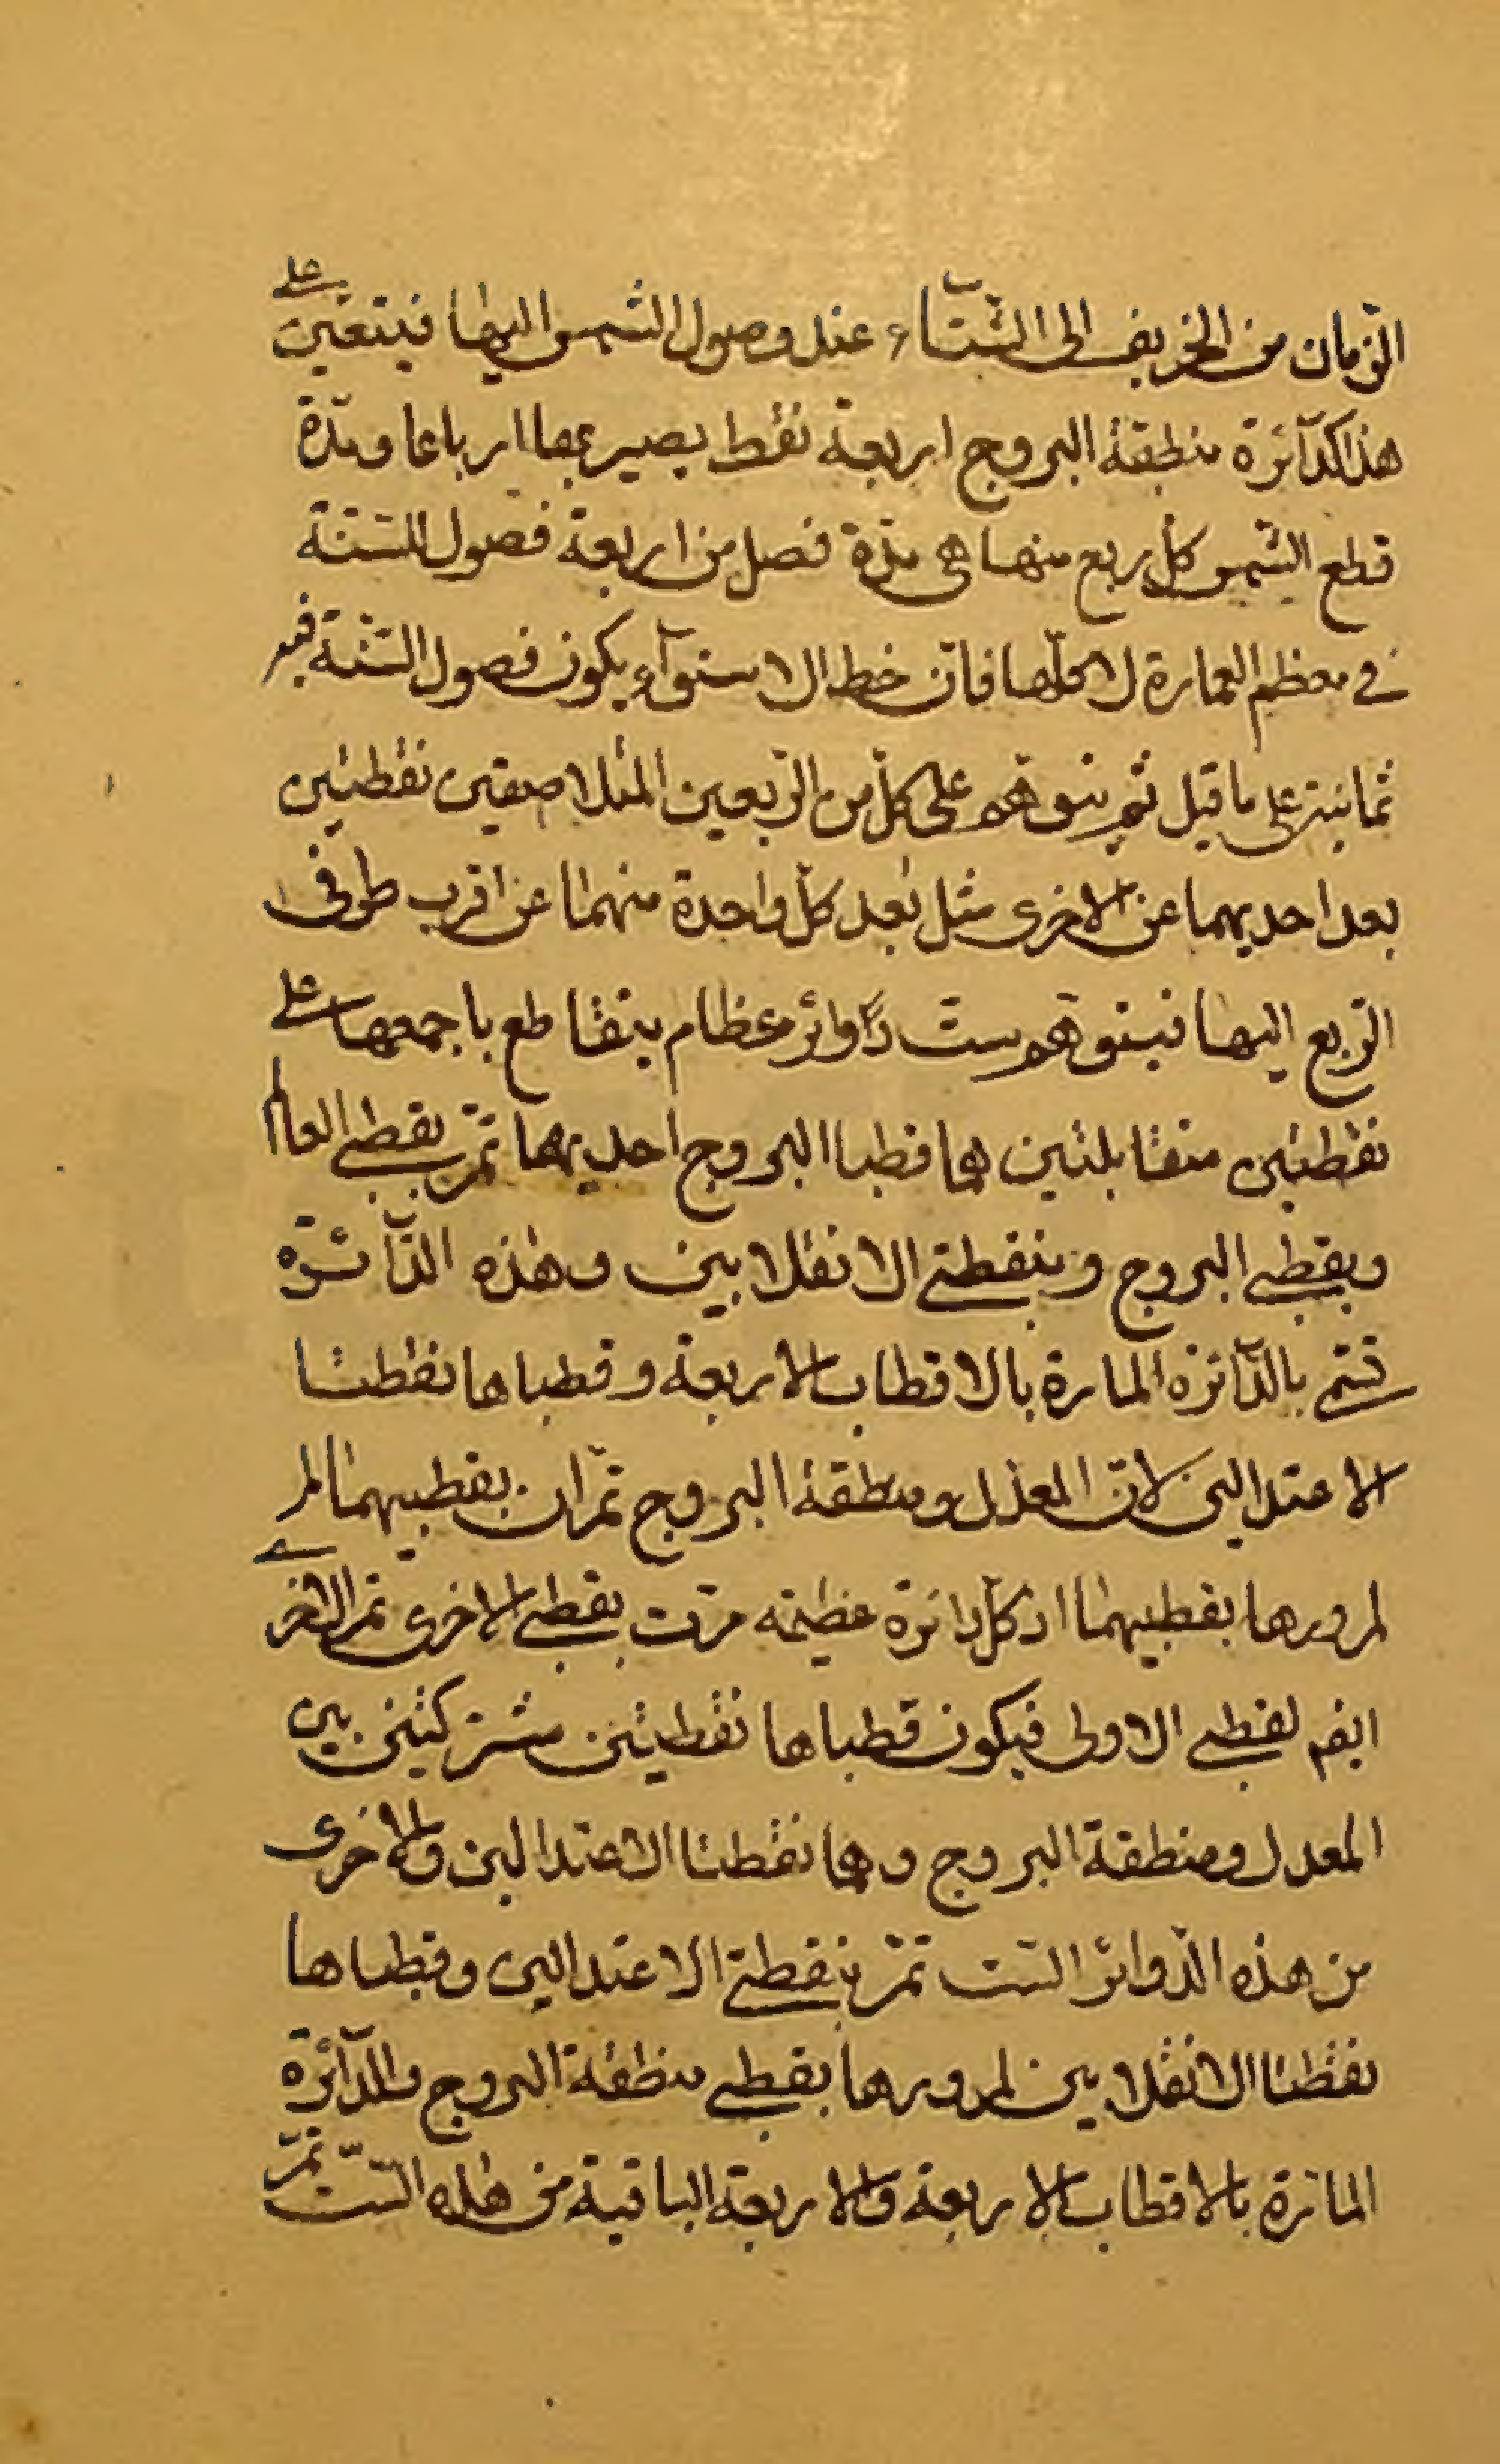 الزّمان من الخريف الى الشّتآء عند وصول الشمس اليها فيتعيّن على
هذا كدآئرة منطقة البروج اربعة نقط يصير بها ارباعا ومدّة
قطع الشّمس كلّ ربع منها هى مدّة فصل من اربعة فصول السّنة
فى معظم العمارة لا كلّها فانّ خط الاستوآء يكون فصول السّنة فيه
ثمانية على ما قيل ثم يتوهّم على كلّ من الرّبعين المتلاصقين نقطتين
بعد احديهما عن الاخرى مثل بعد كلّ واحدة منهما عن اقرب طرفى
الرّبع اليها فيتوهّم ستّ دوآئر عظام يتقاطع باجمعها على
نقطتين متقابلتين هما قطبا البروج احديهما تمرّ بقطبى العالم
وبقطبى البروج وبنقطتى الانقلابين وهذه الدّآئرة
تسمّى بالدّآئرة المارة بالاقطاب الاربعة وقطباها نقطتا
الاعتدالين لانّ المعدّل ومنطقة البروج تمّران بقطبيهما
لمرورها بقطبيهما اذ كلّ دائرة عظيمة مرّت بقطبى الاخرى تمر الاخرى
ايضم بقطبى الاولى فيكون قطباها نقطتين مشتركتين بين
المعدل ومنطقة البروج وهما نقطتا الاعتدالين والاخرى
من هذه الدّوائر السّت تمّر بنقطتى الاعتدالين وقطباها
نقطتا الانقلابين لمرورها بقطبى منطقة البروج والدّآئرة
المارّة بالاقطاب الاربعة والاربعة الباقية من هذه السّت تمرّ